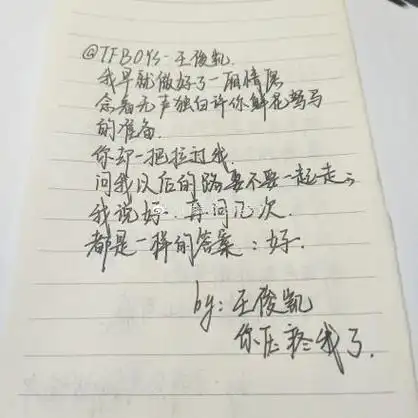 @TFBOYS-王俊凯.
我早就做好了一厢情愿
念着无声独白许你鲜花驽马
的准备.
你却一把拉过我.
问我以后的路要不要一起走。
我说好.再问几次.
都是一样的答案:好.
by:王俊凯
你压疼我了.